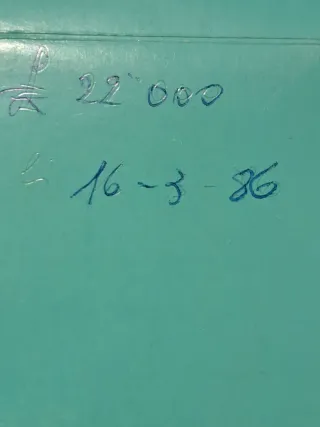 22 000
16 - 3 - 86